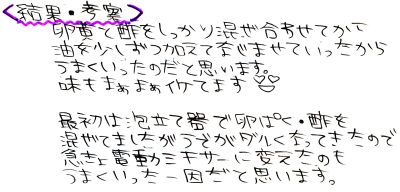 <結果・考察>
卵黄と酢をしっかり混ぜ合わせてから
油を少しずつ加えてなじませていったから
うまくいったのだと思います。
味もまぁまぁイケてます
最初は泡立て器で卵ぱく・酢を
混ぜてましたがうでがダルくなってきたので
急きょ電動ミキサーに変えたのも
うまくいった一因だと思います。